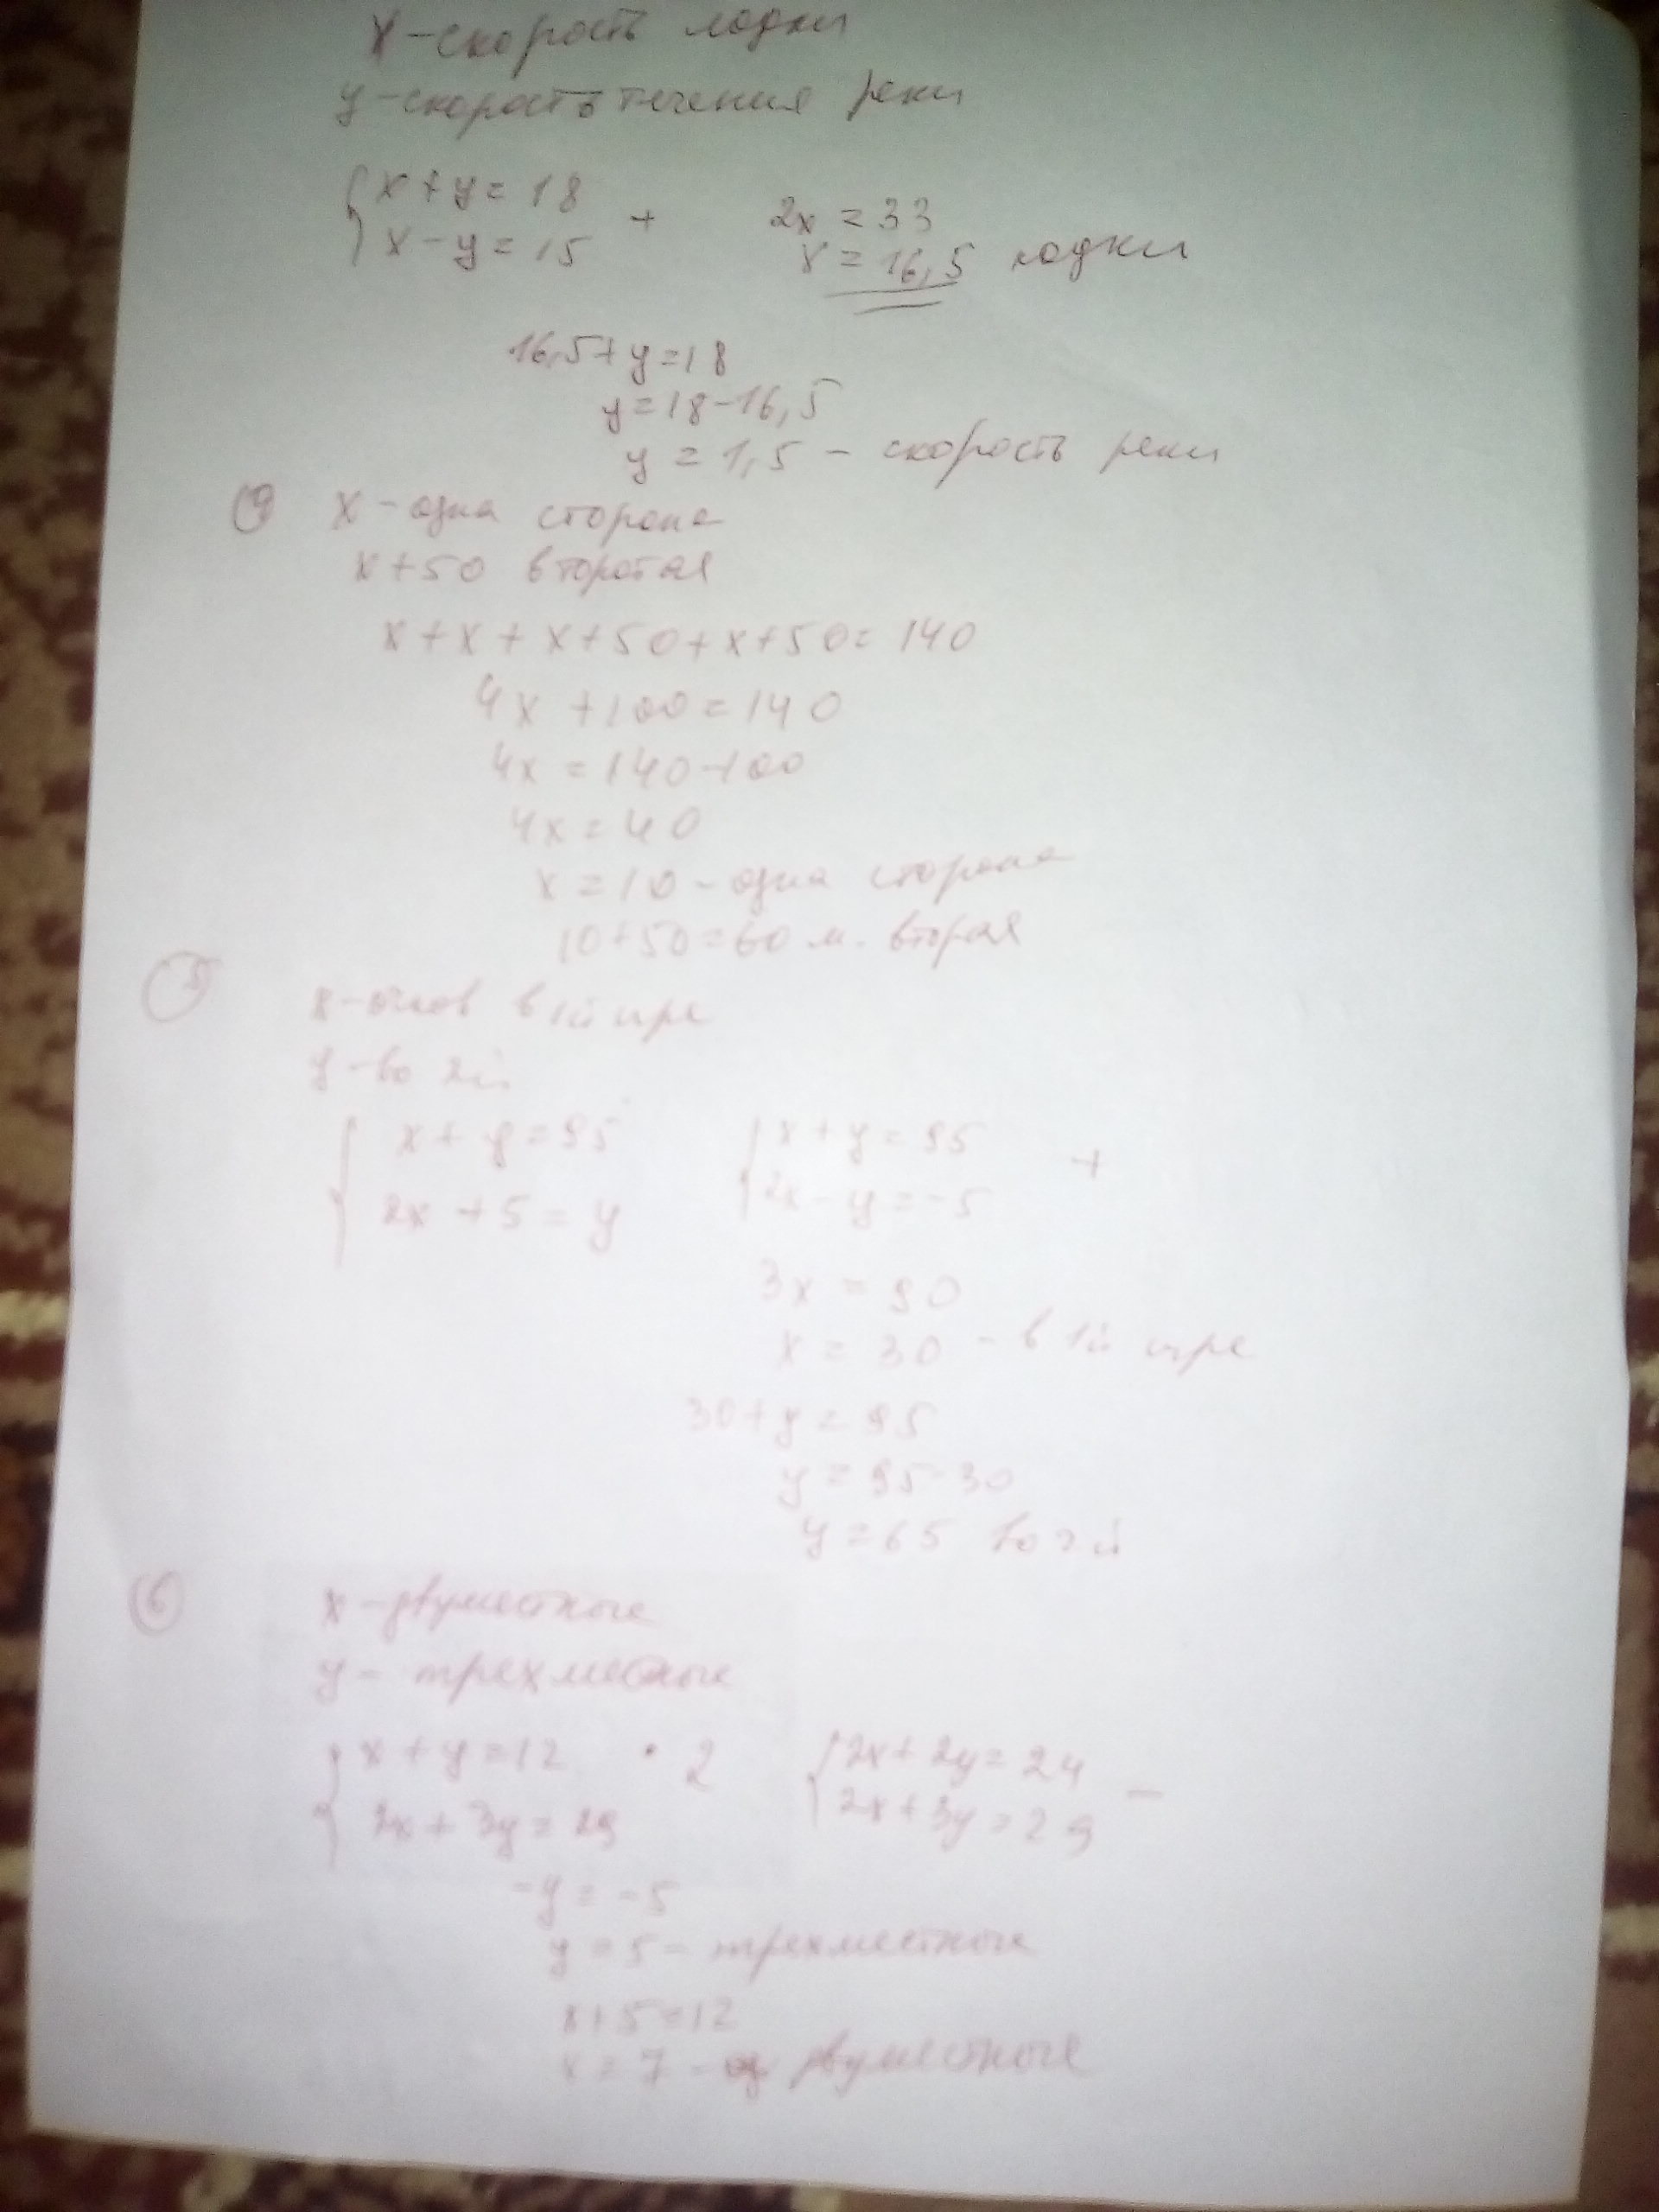 x – скорость лодки
y – скорость течения реки
x + y = 18
x – y = 15
+
2x = 33
x = 16,5 лодки
16,5 + y = 18
y = 18 – 16,5
y = 1,5 – скорость реки
x – одна сторона
x + 50 вторая
x + x + x + 50 + x + 50 = 140
4x + 100 = 140
4x = 140 – 100
4x = 40
x = 10 – одна сторона
10 + 50 = 60 м. вторая
5
x – очков в 1й игре
y – во 2й
x + y = 95
2x + 5 = y
x + y = 95
2x – y = –5
+
3x = 90
x = 30 – в 1й игре
30 + y = 95
y = 95 – 30
y = 65 во 2й
6
x – двуместные
y – трехместные
x + y = 12 · 2
2x + 3y = 29
2x + 2y = 24
2x + 3y = 29
–
–y = –5
y = 5 – трехместные
x + 5 = 12
x = 7 – двуместные